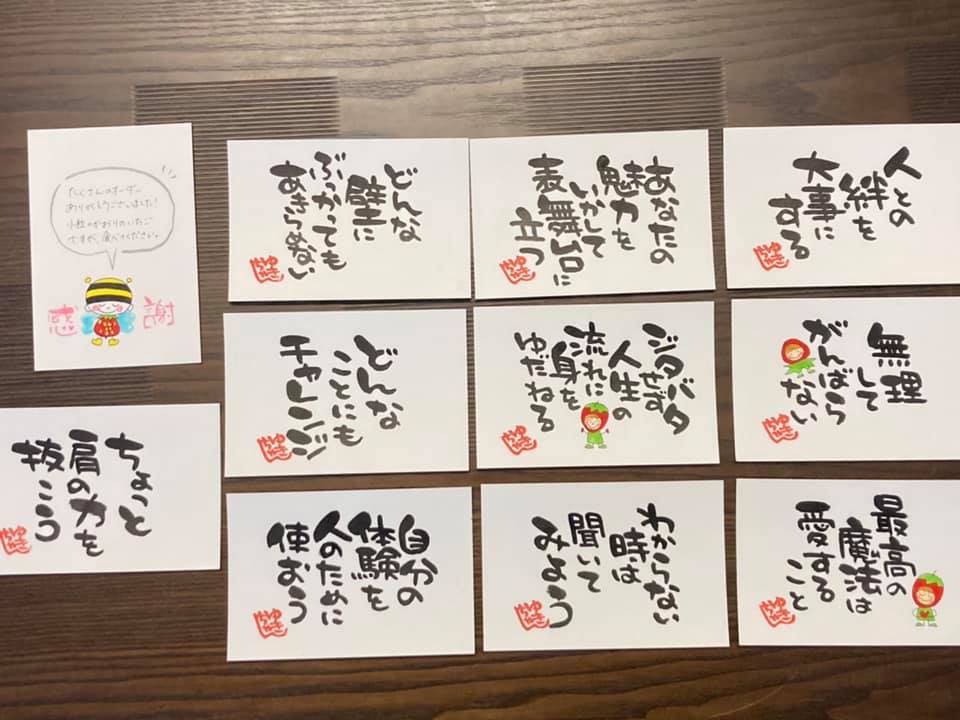 たくさんのオーダー
ありがとうございました!
小粒のかおりのいちご
ですが、食べてください。
感謝
どんな
壁に
ぶつかっても
あきらめない
あなたの
魅力を
いかして
表舞台に
立つ
人との
絆を
大事に
する
どんな
ことにも
チャレンジ
ジタバタ
せず
人生の
流れに
身を
ゆだねる
無理
して
がんばら
ない
ちょっと
肩の力を
抜こう
自分の
体験を
人のために
使おう
わからない
時は
聞いて
みよう
最高の
魔法は
愛する
こと